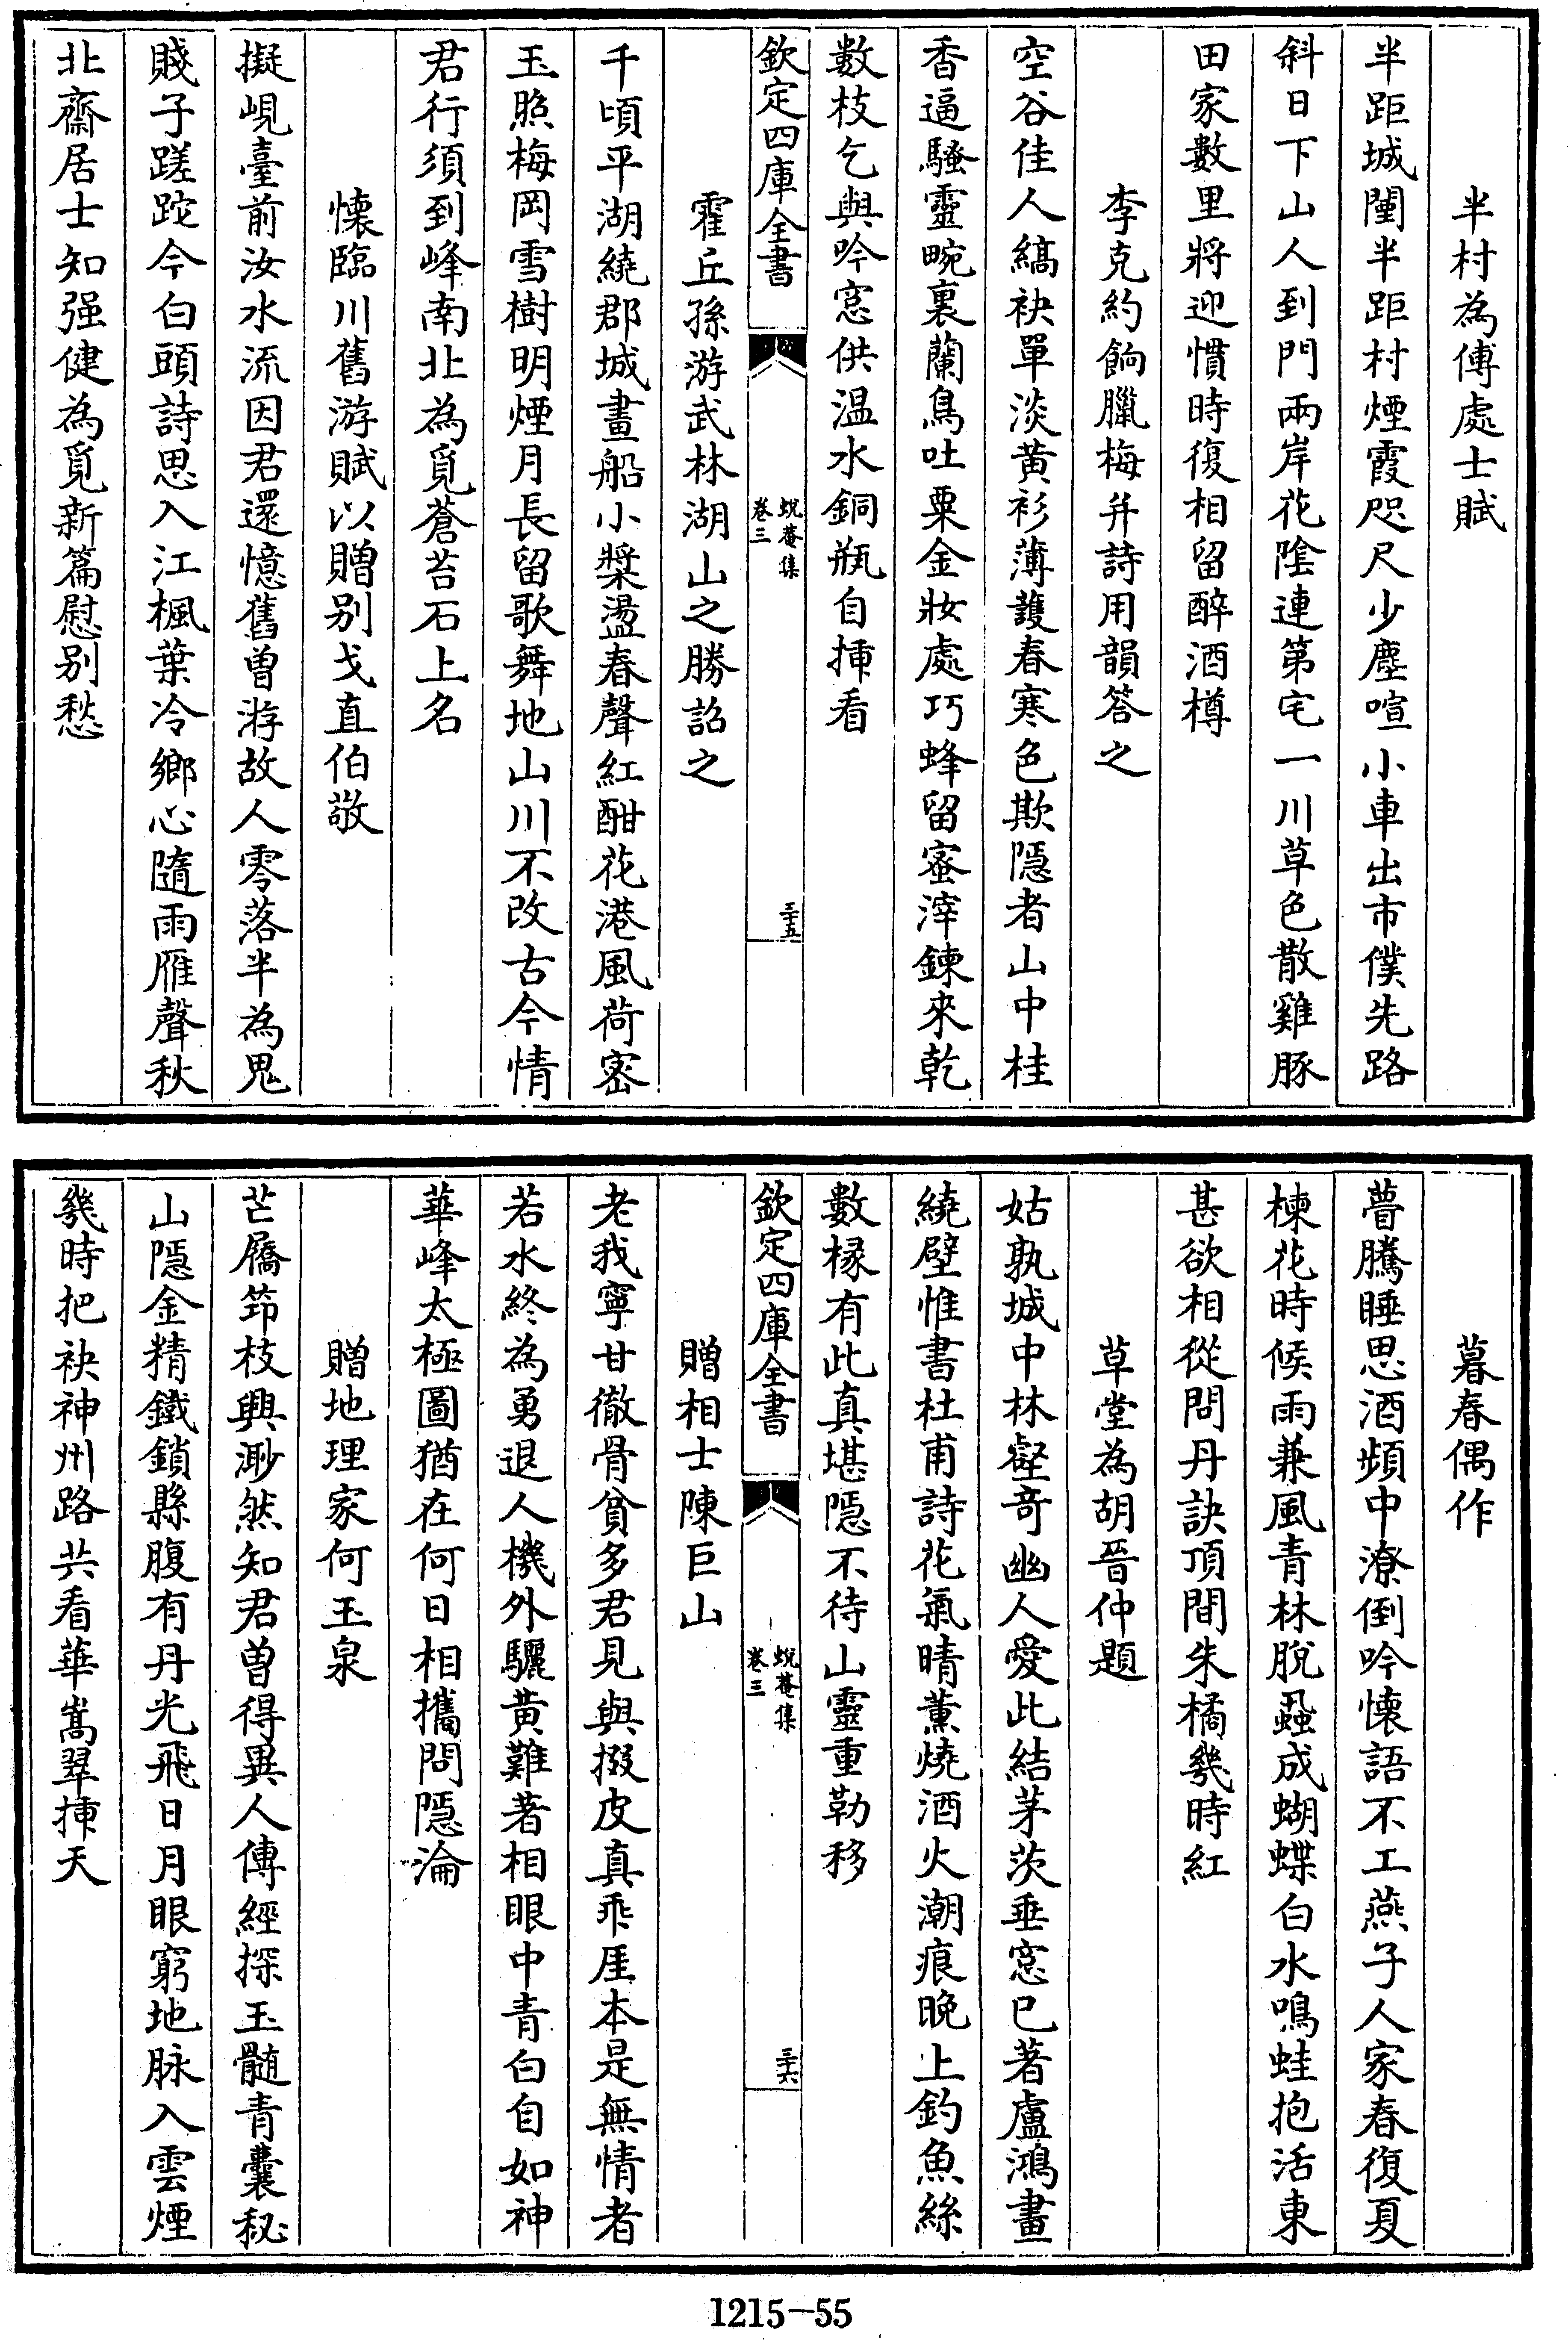 半村為傅處士賦
半距城闉半距村煙霞咫尺少塵喧小車出市僕先路
斜日下山人到門兩岸花陰連第宅一川草色散雞豚
田家數里將迎慣時復相留醉酒樽
李克約餉臘梅并詩用韻答之
空谷佳人縞袂單淡黄衫薄護春寒色欺隠者山中桂
香逼騷靈畹裏蘭鳥吐粟金妝處巧蜂留蜜滓鍊來乾
數枝乞與吟窓供温水銅瓶自揷看
欽定四庫全書
蛻菴集
卷三
三十五
霍丘孫游武林湖山之勝詔之
千頃平湖繞郡城畫船小槳盪春聲紅酣花港風荷宻
玉照梅岡雪樹明煙月長留歌舞地山川不改古今情
君行須到峰南北為覓蒼苔石上名
懐臨川舊游賦以贈别戈直伯敬
擬峴臺前汝水流因君還憶舊曾游故人零落半為鬼
賤子蹉跎今白頭詩思入江楓葉冷鄉心隨雨雁聲秋
北齋居士知强健為覓新篇慰别愁
暮春偶作
瞢騰睡思酒頻中潦倒吟懐語不工燕子人家春復夏
楝花時候雨兼風青林脫蝨成蝴蝶白水鳴蛙抱活東
甚欲相從問丹訣頂間朱橘幾時紅
草堂為胡晉仲題
姑孰城中林壑竒幽人愛此結茅茨垂窓已著盧鴻畫
繞壁惟書杜甫詩花氣晴薰燒酒火潮痕晚上釣魚絲
數椽有此真堪隠不待山靈重勒移
欽定四庫全書
蛻菴集
卷三
三十六
贈相士陳巨山
老我寧甘徹骨貧多君見與掇皮真乖厓本是無情者
若水終為勇退人機外驪黄難著相眼中青白自如神
華峰太極圖猶在何日相攜問隠淪
贈地理家何玉泉
芒屩笻枝興渺然知君曽得異人傳經探玉髄青囊秘
山隠金精鐵鎖縣腹有丹光飛日月眼窮地脉入雲煙
幾時把袂神州路共看華嵩翠揷天
1215-55